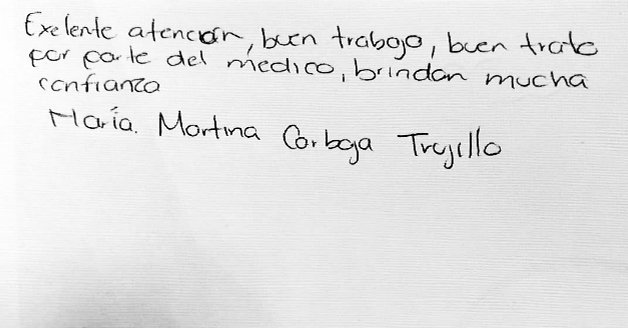 Exelente atención, buen trabajo, buen trato
por parte del médico, brindan mucha
confianza
María. Martina Carbaja Trujillo